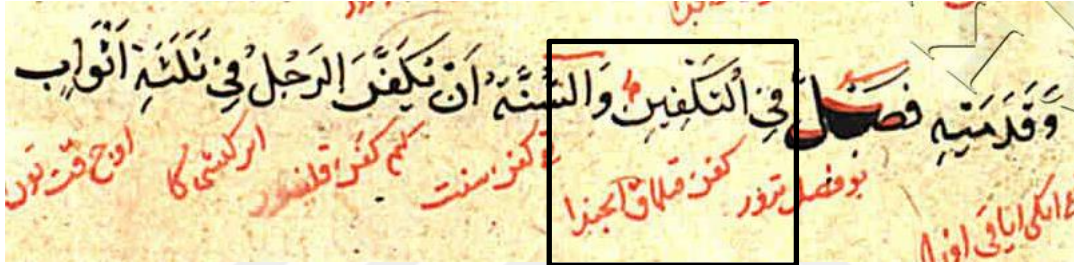 وَقَدَمَيْهِ فَصْلٌ فِي التَّكْفِينِ وَالسُّنَّةُ اَنْ يُكَفَّنَ الرَجُلُ فِي ثَلَثَةِ اَثْوَابٍ
ايكى اياقى بو فصل ترور كفن قيلماق ايجندا كفن سنت كيم كفن قلنور ار كشى كا اوج قت تون